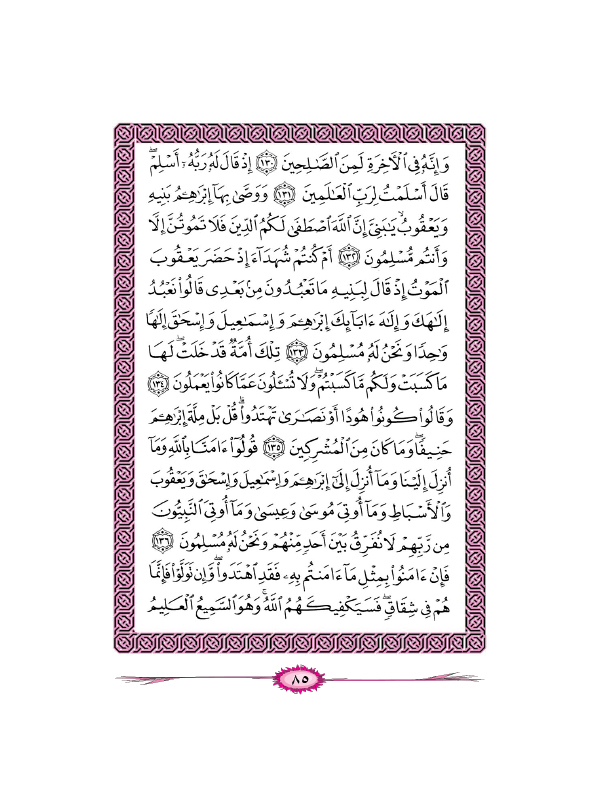 وَإِنَّهُۥ فِى ٱلْأَخِرَةِ لَمِنَ ٱلصَّٰلِحِينَ ﴿١٣٠﴾ إِذْ قَالَ لَهُۥ رَبُّهُۥٓ أَسْلِمْ ۖ
قَالَ أَسْلَمْتُ لِرَبِّ ٱلْعَٰلَمِينَ ﴿١٣١﴾ وَوَصَّىٰ بِهَآ إِبْرَٰهِۦمُ بَنِيهِ
وَيَعْقُوبُ ۗ يَٰبَنِىَّ إِنَّ ٱللَّهَ ٱصْطَفَىٰ لَكُمُ ٱلدِّينَ فَلَا تَمُوتُنَّ إِلَّا
وَأَنتُم مُّسْلِمُونَ ﴿١٣٢﴾ أَمْ كُنتُمْ شُهَدَآءَ إِذْ حَضَرَ يَعْقُوبَ
ٱلْمَوْتُ إِذْ قَالَ لِبَنِيهِ مَا تَعْبُدُونَ مِنۢ بَعْدِى قَالُوا۟ نَعْبُدُ
إِلَٰهَكَ وَإِلَٰهَ ءَابَآئِكَ إِبْرَٰهِۦمَ وَإِسْمَٰعِيلَ وَإِسْحَٰقَ إِلَٰهًا
وَٰحِدًا وَنَحْنُ لَهُۥ مُسْلِمُونَ ﴿١٣٣﴾ تِلْكَ أُمَّةٌ قَدْ خَلَتْ ۖ لَهَا
مَا كَسَبَتْ وَلَكُم مَّا كَسَبْتُمْ ۖ وَلَا تُسْـَٔلُونَ عَمَّا كَانُوا۟ يَعْمَلُونَ ﴿١٣٤﴾
وَقَالُوا۟ كُونُوا۟ هُودًا أَوْ نَصَٰرَىٰ تَهْتَدُوا۟ ۗ قُلْ بَلْ مِلَّةَ إِبْرَٰهِۦمَ
حَنِيفًا ۖ وَمَا كَانَ مِنَ ٱلْمُشْرِكِينَ ﴿١٣٥﴾ قُولُوٓا۟ ءَامَنَّا بِٱللَّهِ وَمَآ
أُنزِلَ إِلَيْنَا وَمَآ أُنزِلَ إِلَىٰٓ إِبْرَٰهِۦمَ وَإِسْمَٰعِيلَ وَإِسْحَٰقَ وَيَعْقُوبَ
وَٱلْأَسْبَاطِ وَمَآ أُوتِىَ مُوسَىٰ وَعِيسَىٰ وَمَآ أُوتِىَ ٱلنَّبِيُّونَ
مِن رَّبِّهِمْ لَا نُفَرِّقُ بَيْنَ أَحَدٍ مِّنْهُمْ وَنَحْنُ لَهُۥ مُسْلِمُونَ ﴿١٣٦﴾
فَإِنْ ءَامَنُوا۟ بِمِثْلِ مَآ ءَامَنتُم بِهِۦ فَقَدِ ٱهْتَدَوا۟ ۖ وَّإِن تَوَلَّوْا۟ فَإِنَّمَا
هُمْ فِى شِقَاقٍ ۖ فَسَيَكْفِيكَهُمُ ٱللَّهُ ۚ وَهُوَ ٱلسَّمِيعُ ٱلْعَلِيمُ
٨٥